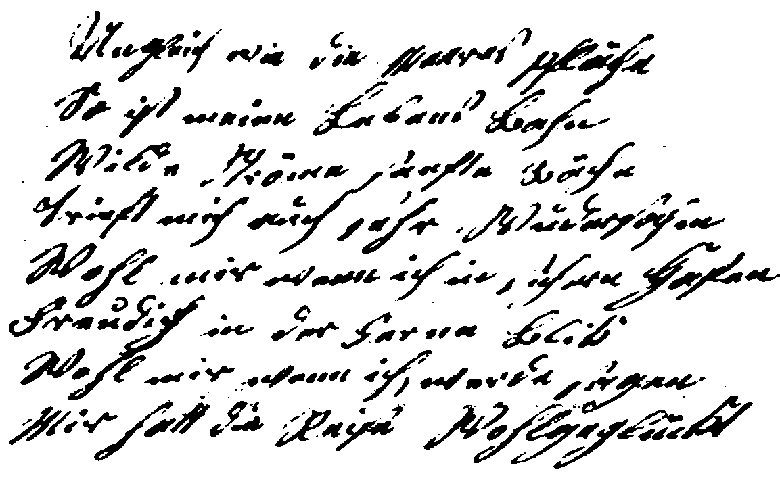 Ungleich wie die Meeres fläche
So ist meien Lebens Bahn
Wilde Ströme sanfte Bäche
Trieft mich auch sehr
Wohl mir wenn ich in sichern Hafen
Freudich in der Ferne Blik
Wohl mir wenn ich, werde sagen
Mir hatt die Reise Wohlgeglückt